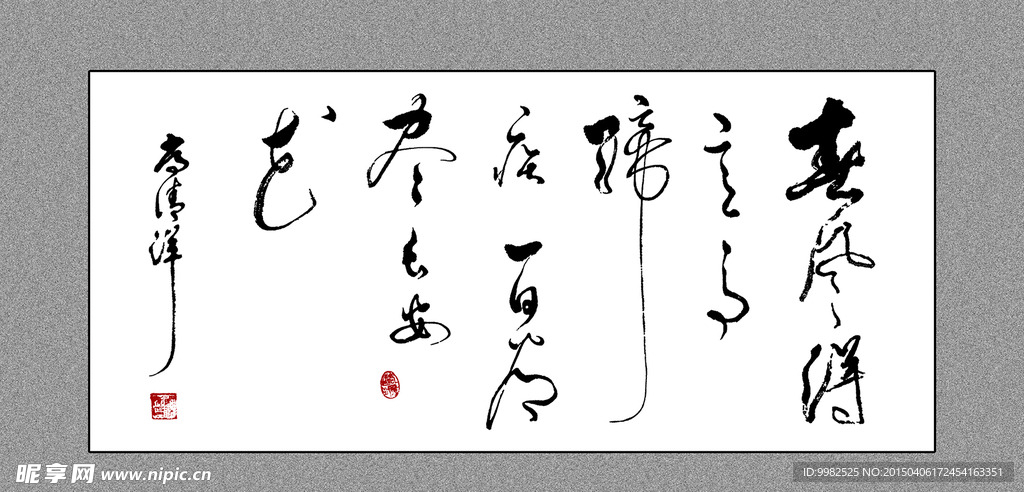 春风得
意马
蹄
疾一日看
尽长安
花
清洋
昵享网 www.nipic.cn
ID:9982525 NO:20150406172454163351